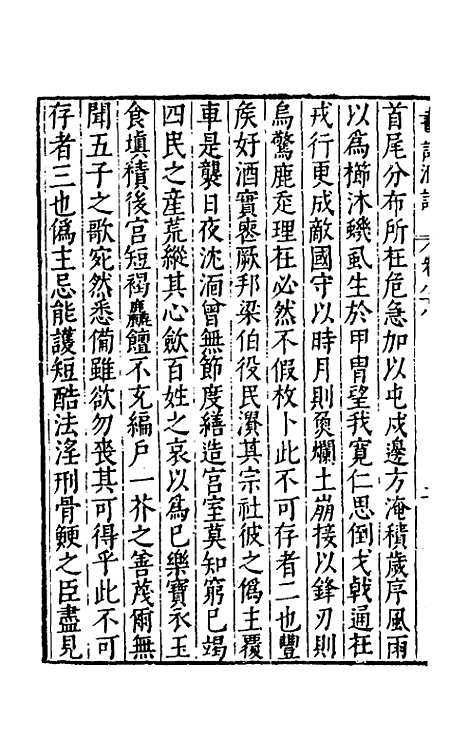 首尾分布所在危急加以屯戍邊方淹積歲序風雨
以爲櫛沐蟣虱生於甲冑望我寬仁思倒戈戟通在
戎行更成敵國守以時月則魚爛土崩接以鋒刃則
烏驚鹿走理在必然不假枚卜此不可存者二也豐
侯好酒實喪厥邦梁伯役民潰其宗社彼之僞主覆
車是襲日夜沈湎曾無節度繕造宮室莫知窮已竭
四民之產荒縱其心飲百姓之哀以爲己樂寶衣玉
食塡積後宮短褐麤饘不充編戶一芥之善茂爾無
聞五子之歌宛然悉備雖欲勿喪其可得乎此不可
存者三也僞主忌能護短酷法淫刑骨鯁之臣盡見